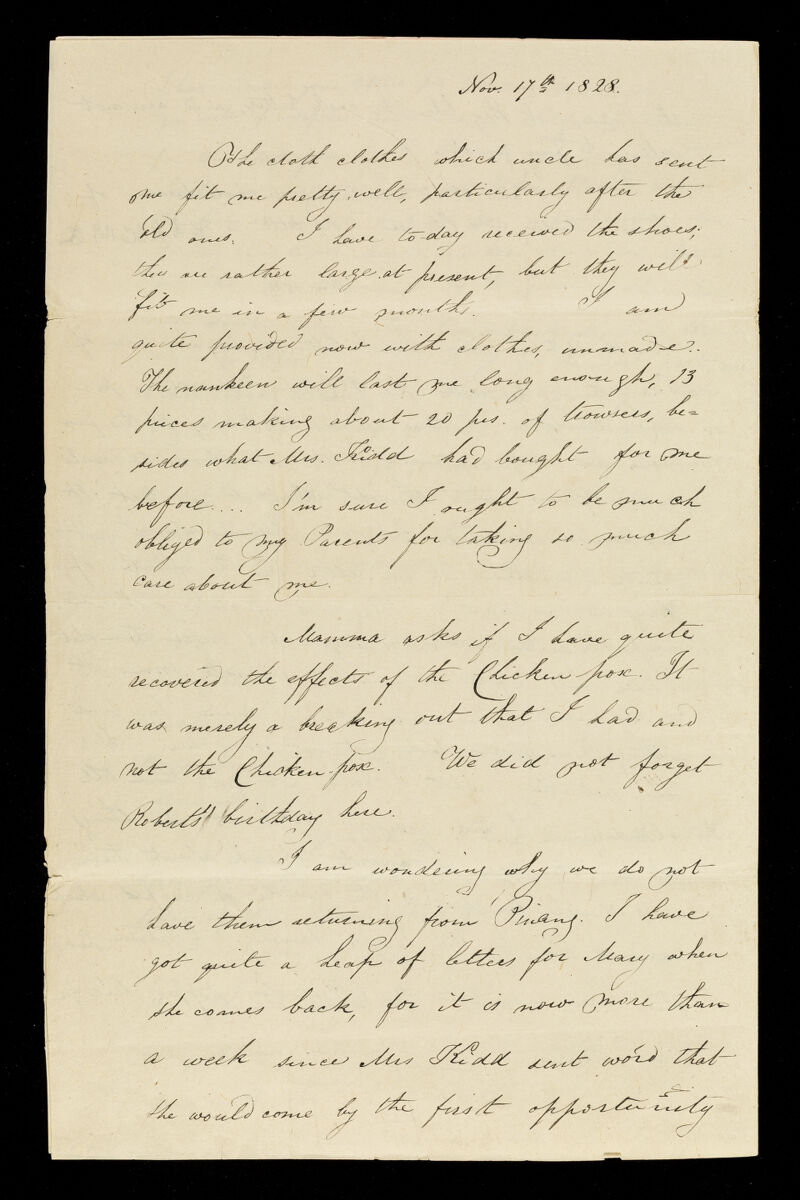 Nov. 17th 1828.
The cloth clothes which uncle has sent
me fit me pretty well, particularly after the
old ones. I have to-day received the shoes;
they are rather large at present, but they will
fit me in a few months. I am
quite provided now with clothes, unmade.
The nankeen will last me long enough, 13
pieces making about 20 prs. of trowsers, be=
sides what Mrs. Kidd had bought for me
before.... I'm sure I ought to be much
obliged to my Parents for taking so much
care about me.
Mamma asks if I have quite
recovered the effects of the Chicken pox. It
was merely a breaking out that I had and
not the Chicken-pox. We did not forget
Robert's birthday here.
I am wondering why we do not
have them returning from Pinang. I have
got quite a heap of letters for Mary when
she comes back, for it is now more than
a week since Mrs Kidd sent word that
she would come by the first opportunity